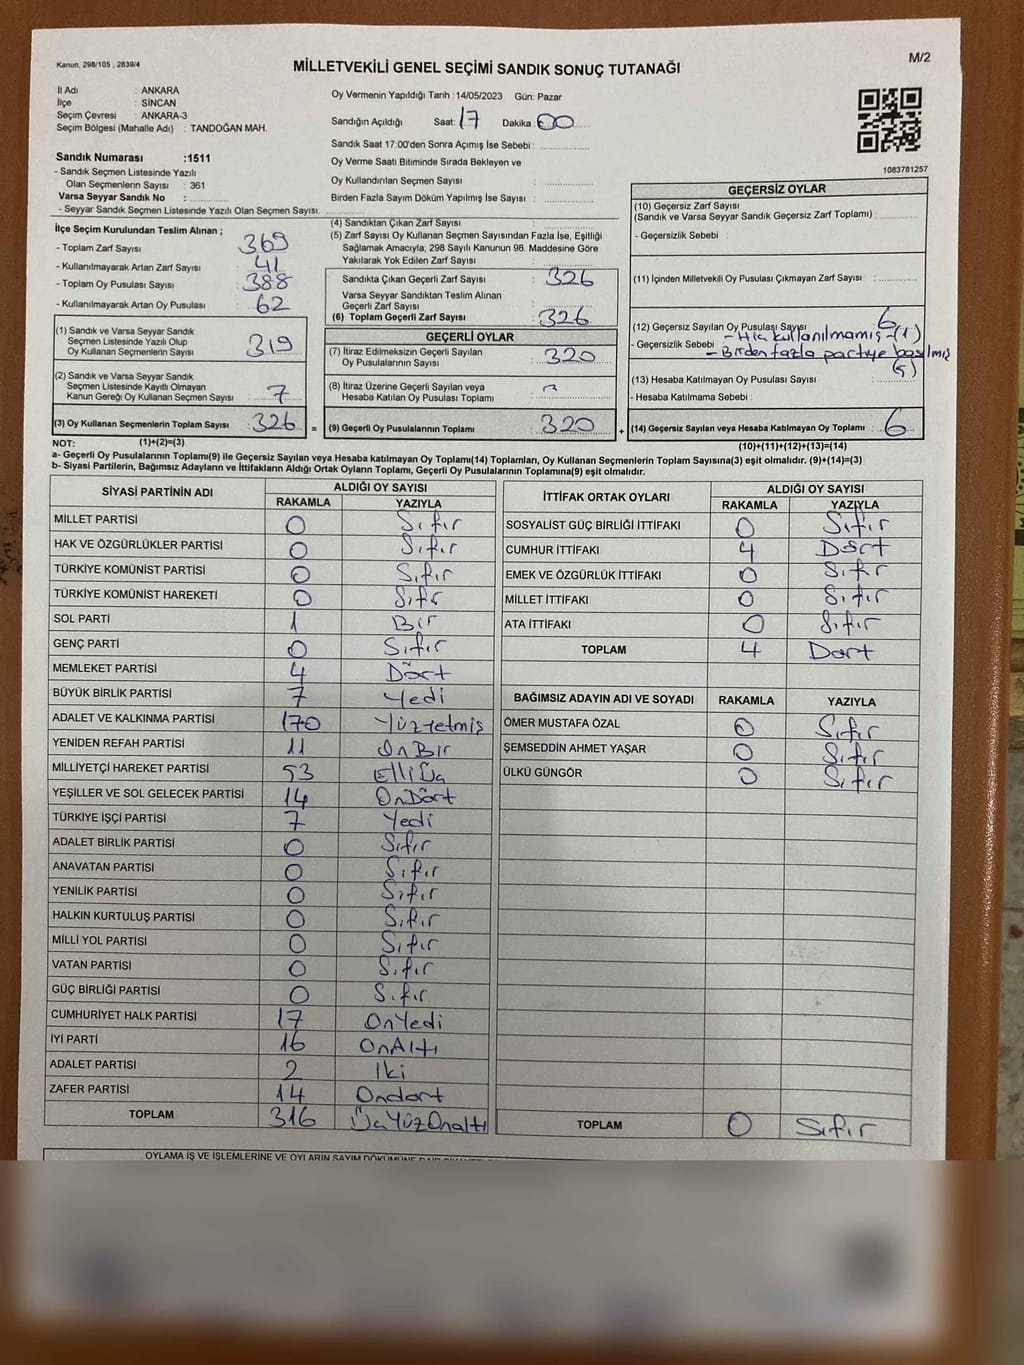 Kanun; 298/105 , 2839/4
M/2
MİLLETVEKİLİ GENEL SEÇİMİ SANDIK SONUÇ TUTANAĞI
İl Adı : ANKARA
İlçe : SİNCAN
Seçim Çevresi : ANKARA-3
Seçim Bölgesi (Mahalle Adı) : TANDOĞAN MAH.
Sandık Numarası :1511
- Sandık Seçmen Listesinde Yazılı
Olan Seçmenlerin Sayısı : 361
Varsa Seyyar Sandık No :
- Seyyar Sandık Seçmen Listesinde Yazılı Olan Seçmen Sayısı:
Oy Vermenin Yapıldığı Tarih :14/05/2023 Gün: Pazar
Sandığın Açıldığı Saat: 17 Dakika : 00
Sandık Saat 17:00'den Sonra Açımış İse Sebebi :
Oy Verme Saati Bitiminde Sırada Bekleyen ve
Oy Kullandırılan Seçmen Sayısı :
Birden Fazla Sayım Döküm Yapılmış İse Sayısı :
1083781257
İlçe Seçim Kurulundan Teslim Alınan ;
- Toplam Zarf Sayısı : 369
- Kullanılmayarak Artan Zarf Sayısı : 41
- Toplam Oy Pusulası Sayısı : 388
- Kullanılmayarak Artan Oy Pusulası : 62
(1) Sandık ve Varsa Seyyar Sandık
Seçmen Listesinde Yazılı Olup
Oy Kullanan Seçmenlerin Sayısı : 319
(2) Sandık ve Varsa Seyyar Sandık
Seçmen Listesinde Kayıtlı Olmayan
Kanun Gereği Oy Kullanan Seçmen Sayısı : 7
(3) Oy Kullanan Seçmenlerin Toplam Sayısı : 326 =
(4) Sandıktan Çıkan Zarf Sayısı :
(5) Zarf Sayısı Oy Kullanan Seçmen Sayısından Fazla İse, Eşitliği
Sağlamak Amacıyla; 298 Sayılı Kanunun 98. Maddesine Göre
Yakılarak Yok Edilen Zarf Sayısı :
Sandıkta Çıkan Geçerli Zarf Sayısı : 326
Varsa Seyyar Sandıktan Teslim Alınan
Geçerli Zarf Sayısı :
(6) Toplam Geçerli Zarf Sayısı : 326
GEÇERLİ OYLAR
(7) İtiraz Edilmeksizin Geçerli Sayılan
Oy Pusulalarının Sayısı : 320
(8) İtiraz Üzerine Geçerli Sayılan veya
Hesaba Katılan Oy Pusulası Toplamı :
(9) Geçerli Oy Pusulalarının Toplamı : 320 +
GEÇERSİZ OYLAR
(10) Geçersiz Zarf Sayısı
(Sandık ve Varsa Seyyar Sandık Geçersiz Zarf Toplamı) :
- Geçersizlik Sebebi :
(11) İçinden Milletvekili Oy Pusulası Çıkmayan Zarf Sayısı :
(12) Geçersiz Sayılan Oy Pusulası Sayısı : 6
- Geçersizlik Sebebi - Hiç kullanılmamış (1)
- Birden fazla partiye basılmış
(5)
(13) Hesaba Katılmayan Oy Pusulası Sayısı :
- Hesaba Katılmama Sebebi :
(14) Geçersiz Sayılan veya Hesaba Katılmayan Oy Toplamı : 6
NOT: (1)+(2)=(3) (10)+(11)+(12)+(13)=(14)
a- Geçerli Oy Pusulalarının Toplamı(9) ile Geçersiz Sayılan veya Hesaba katılmayan Oy Toplamı(14) Toplamları, Oy Kullanan Seçmenlerin Toplam Sayısına(3) eşit olmalıdır. (9)+(14)=(3)
b- Siyasi Partilerin, Bağımsız Adayların ve İttifakların Aldığı Ortak Oyların Toplamı, Geçerli Oy Pusulalarının Toplamına(9) eşit olmalıdır.
SİYASİ PARTİNİN ADI ALDIĞI OY SAYISI
RAKAMLA YAZIYLA
MİLLET PARTİSİ 0 Sıfır
HAK VE ÖZGÜRLÜKLER PARTİSİ 0 Sıfır
TÜRKİYE KOMÜNİST PARTİSİ 0 Sıfır
TÜRKİYE KOMÜNİST HAREKETİ 0 Sıfır
SOL PARTİ 1 Bir
GENÇ PARTİ 0 Sıfır
MEMLEKET PARTİSİ 4 Dört
BÜYÜK BİRLİK PARTİSİ 7 Yedi
ADALET VE KALKINMA PARTİSİ 170 Yüzyetmiş
YENİDEN REFAH PARTİSİ 11 OnBir
MİLLİYETÇİ HAREKET PARTİSİ 53 ElliÜç
YEŞİLLER VE SOL GELECEK PARTİSİ 14 OnDört
TÜRKİYE İŞÇİ PARTİSİ 7 Yedi
ADALET BİRLİK PARTİSİ 0 Sıfır
ANAVATAN PARTİSİ 0 Sıfır
YENİLİK PARTİSİ 0 Sıfır
HALKIN KURTULUŞ PARTİSİ 0 Sıfır
MİLLİ YOL PARTİSİ 0 Sıfır
VATAN PARTİSİ 0 Sıfır
GÜÇ BİRLİĞİ PARTİSİ 0 Sıfır
CUMHURİYET HALK PARTİSİ 17 OnYedi
İYİ PARTİ 16 OnAltı
ADALET PARTİSİ 2 İki
ZAFER PARTİSİ 14 Ondört
TOPLAM 316 ÜçYüzOnaltı
İTTİFAK ORTAK OYLARI ALDIĞI OY SAYISI
RAKAMLA YAZIYLA
SOSYALİST GÜÇ BİRLİĞİ İTTİFAKI 0 Sıfır
CUMHUR İTTİFAKI 4 Dört
EMEK VE ÖZGÜRLÜK İTTİFAKI 0 Sıfır
MİLLET İTTİFAKI 0 Sıfır
ATA İTTİFAKI 0 Sıfır
TOPLAM 4 Dört
BAĞIMSIZ ADAYIN ADI VE SOYADI RAKAMLA YAZIYLA
ÖMER MUSTAFA ÖZAL 0 Sıfır
ŞEMSEDDİN AHMET YAŞAR 0 Sıfır
ÜLKÜ GÜNGÖR 0 Sıfır
TOPLAM 0 Sıfır
OYLAMA İŞ VE İŞLEMLERİNE VE OYLARIN SAYIM DÖKÜMÜNE DAİR